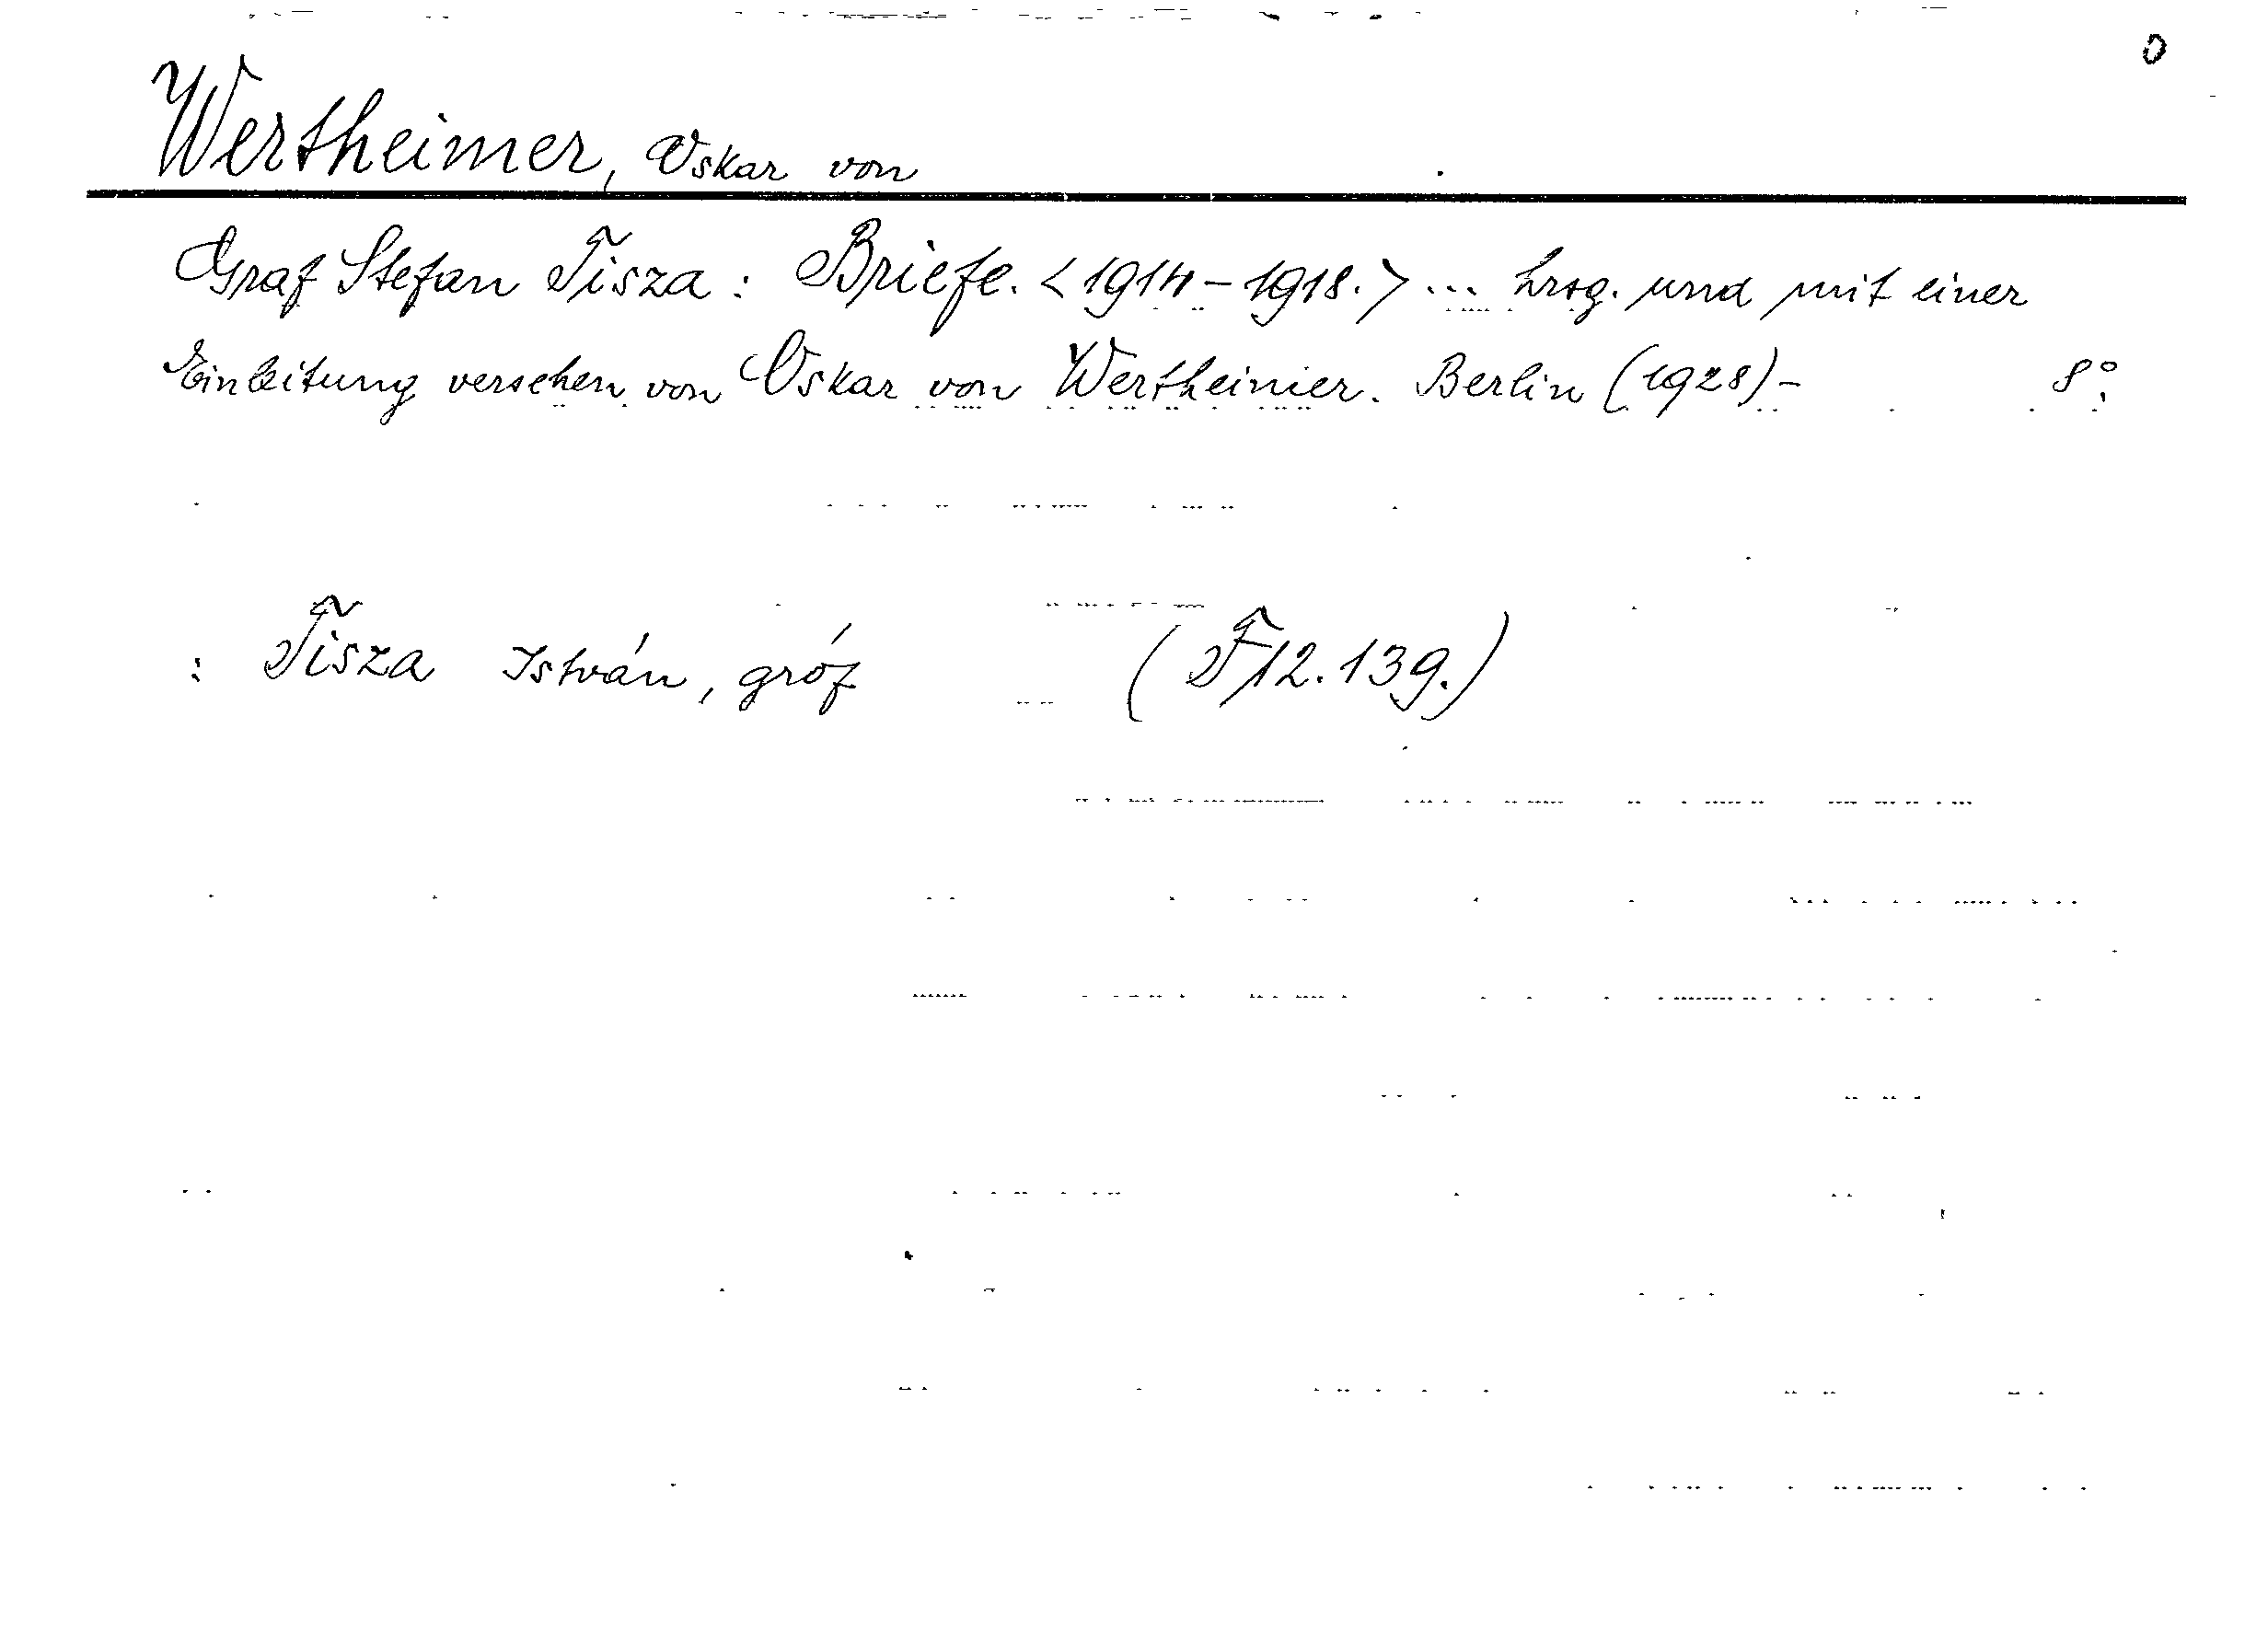 0
Wertheimer, Oskar von
Graf Stefan Tisza: Briefe. <1914-1918.> ... hrsg. und mit einer
Einleitung versehen von Oskar von Wertheimer. Berlin (1928)- 8°.
: Tisza István, gróf (F12.139.)